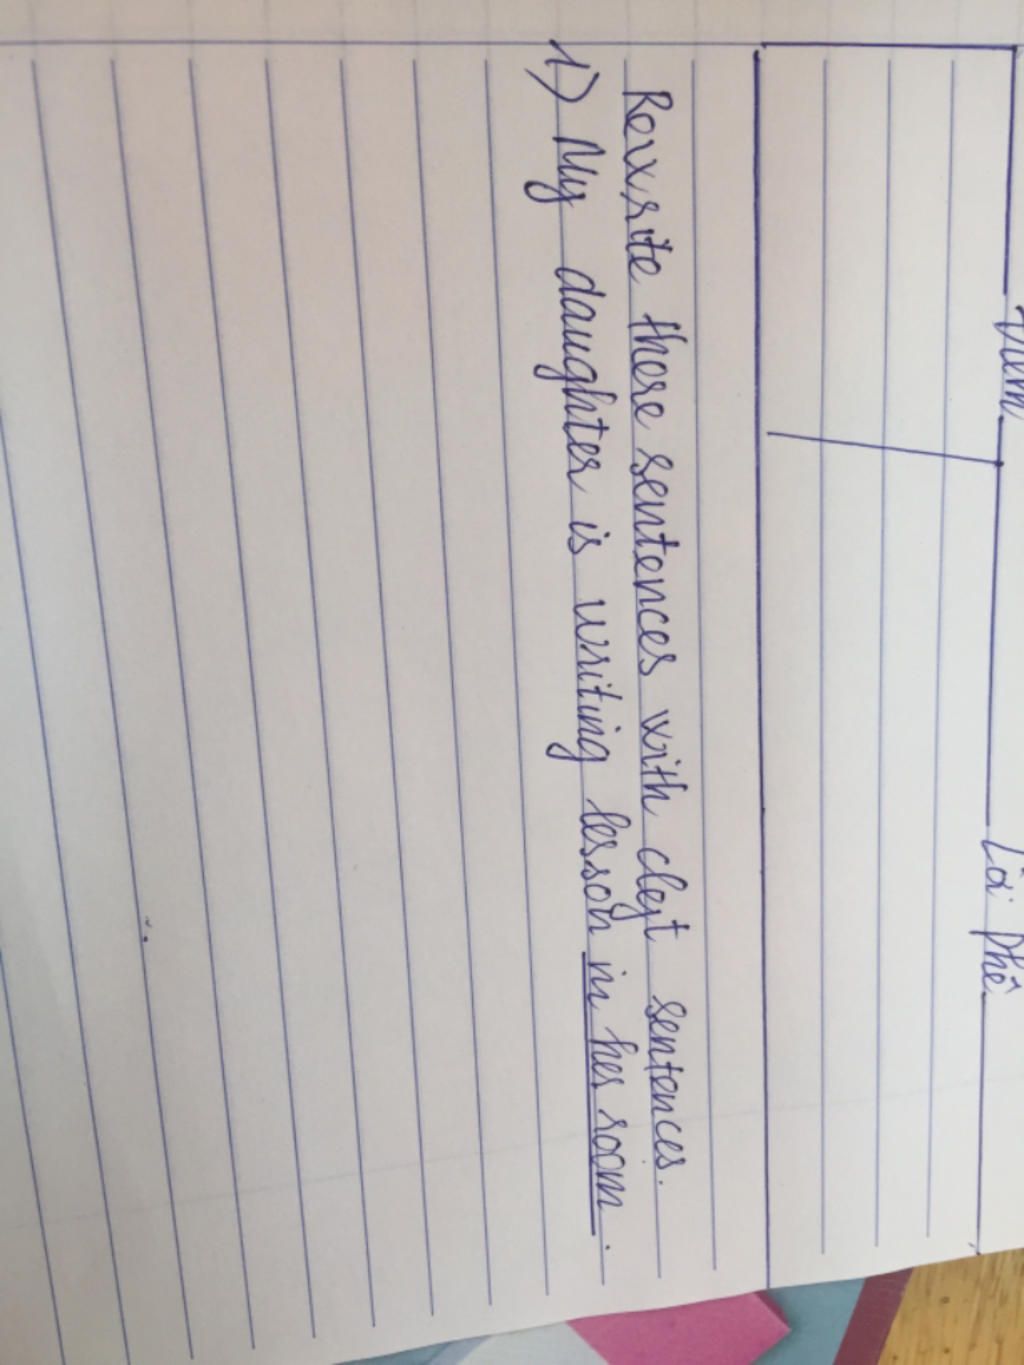 Điểm Lời phê
Rewrite these sentences with cleft sentences.
1) My daughter is writing lesson in her room.